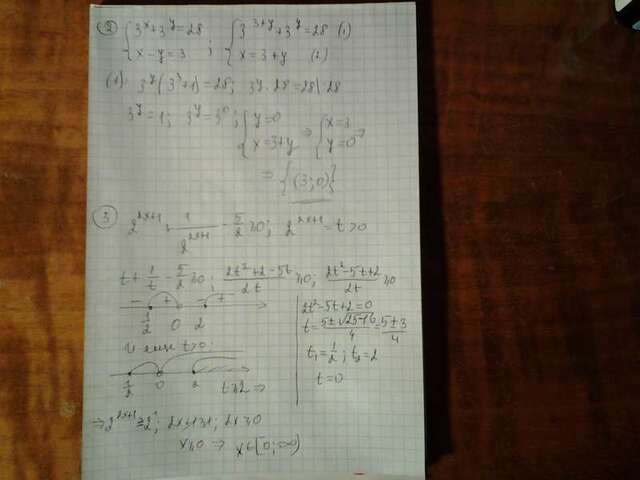 ② { 3^x+3^y=28 ; { 3^{3+y}+3^y=28 (1)
{ x-y=3 { x=3+y (2)
(1): 3^y(3^3+1)=28; 3^y·28=28|:28
3^y=1; 3^y=3^0; { y=0 ⇒ { x=3
{ x=3+y { y=0 ⇒
⇒ {(3;0)}
③ 2^{2x+1}+1/2^{2x+1}-5/2≥0; 2^{2x+1}=t>0
t+1/t-5/2≥0; (2t²+2-5t)/2t≥0; (2t²-5t+2)/2t≥0
- + - +
1/2 0 2
2t²-5t+2=0
t=(5±√25-16)/4=(5±3)/4
t₁=1/2; t₂=2
t=0
t>0:
1/2 0 2 t≥2 ⇒
⇒ 2^{2x+1}≥2^1; 2x+1≥1; 2x≥0
x≥0 ⇒ x∈[0;∞)